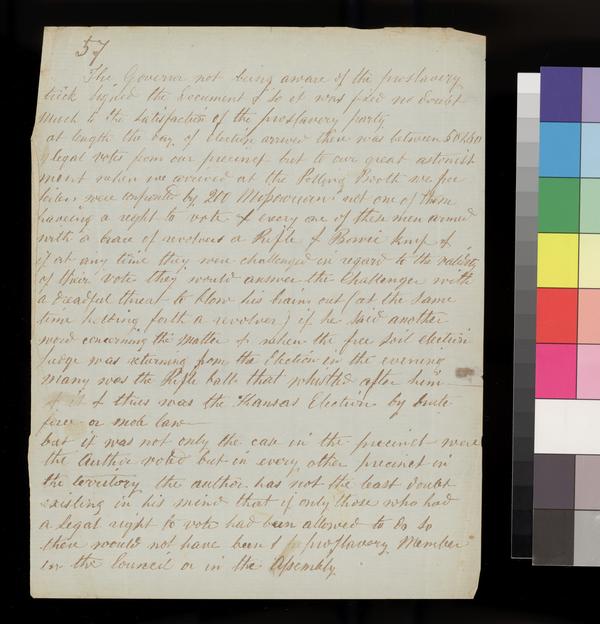 57
The Governor not being aware of the proslavery
trick signed the Document & so it was fixed no doubt
much to the satisfaction of the proslavery party
at length the day of election arrived there was between
legal votes from our precinct but to our great astonish
ment when we arrived at the Polling Booth we free
soilers were confronted by 200 Missourians not one of them
haveing a right to vote & every one of these men armed
with a brace of revolvers a Rifle & Bowie knife &
if at any time they were challenged in regard to the validity
of their vote they would answer the Challenger with
a dreadful threat to blow his brains out (at the same
time holding forth a revolver) if he said another
word concerning the matter & when the free soil election
judge was returning from the Election in the evening
many was the Rifle balls that whistled after him
& thus was the Kansas Election by brute
force or mob law
but it was not only the case in the precinct were
the Author voted but in every other precinct in
the territory the author has not the least doubt
existing in his mind that if only those who had
a legal right to vote had been allowed to do so
there would not have been 1 proslavery Member
in the Council or in the Assembly